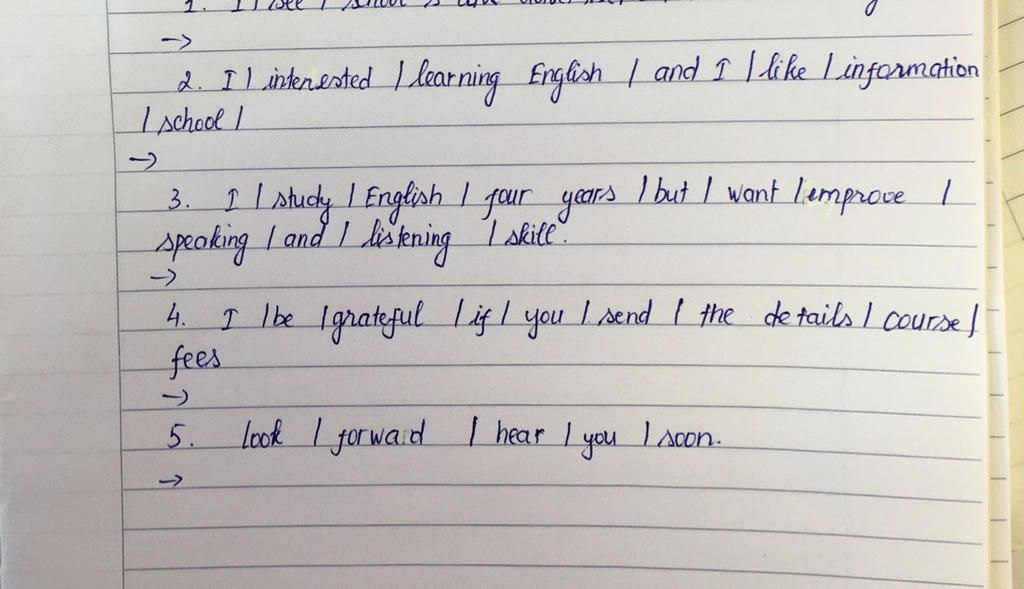 1. I / see / school
→
2. I / interested / learning English / and I / like / information
/ school /
→
3. I / study / English / four years / but / want / improve /
speaking / and / listening / skill.
→
4. I / be / grateful / if / you / send / the details / course /
fees
→
5. look / forwad / hear / you / soon.
→